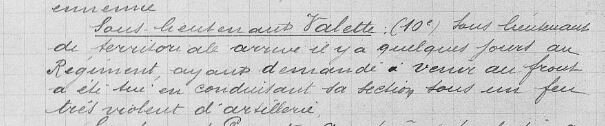 ennemie
Sous lieutenant Valette. (10e) Sous lieutenant
de territoriale arrivé il y a quelques jours au
Régiment, ayant demandé à venir au front
a été tué en conduisant sa section sous un feu
très violent d'artillerie.